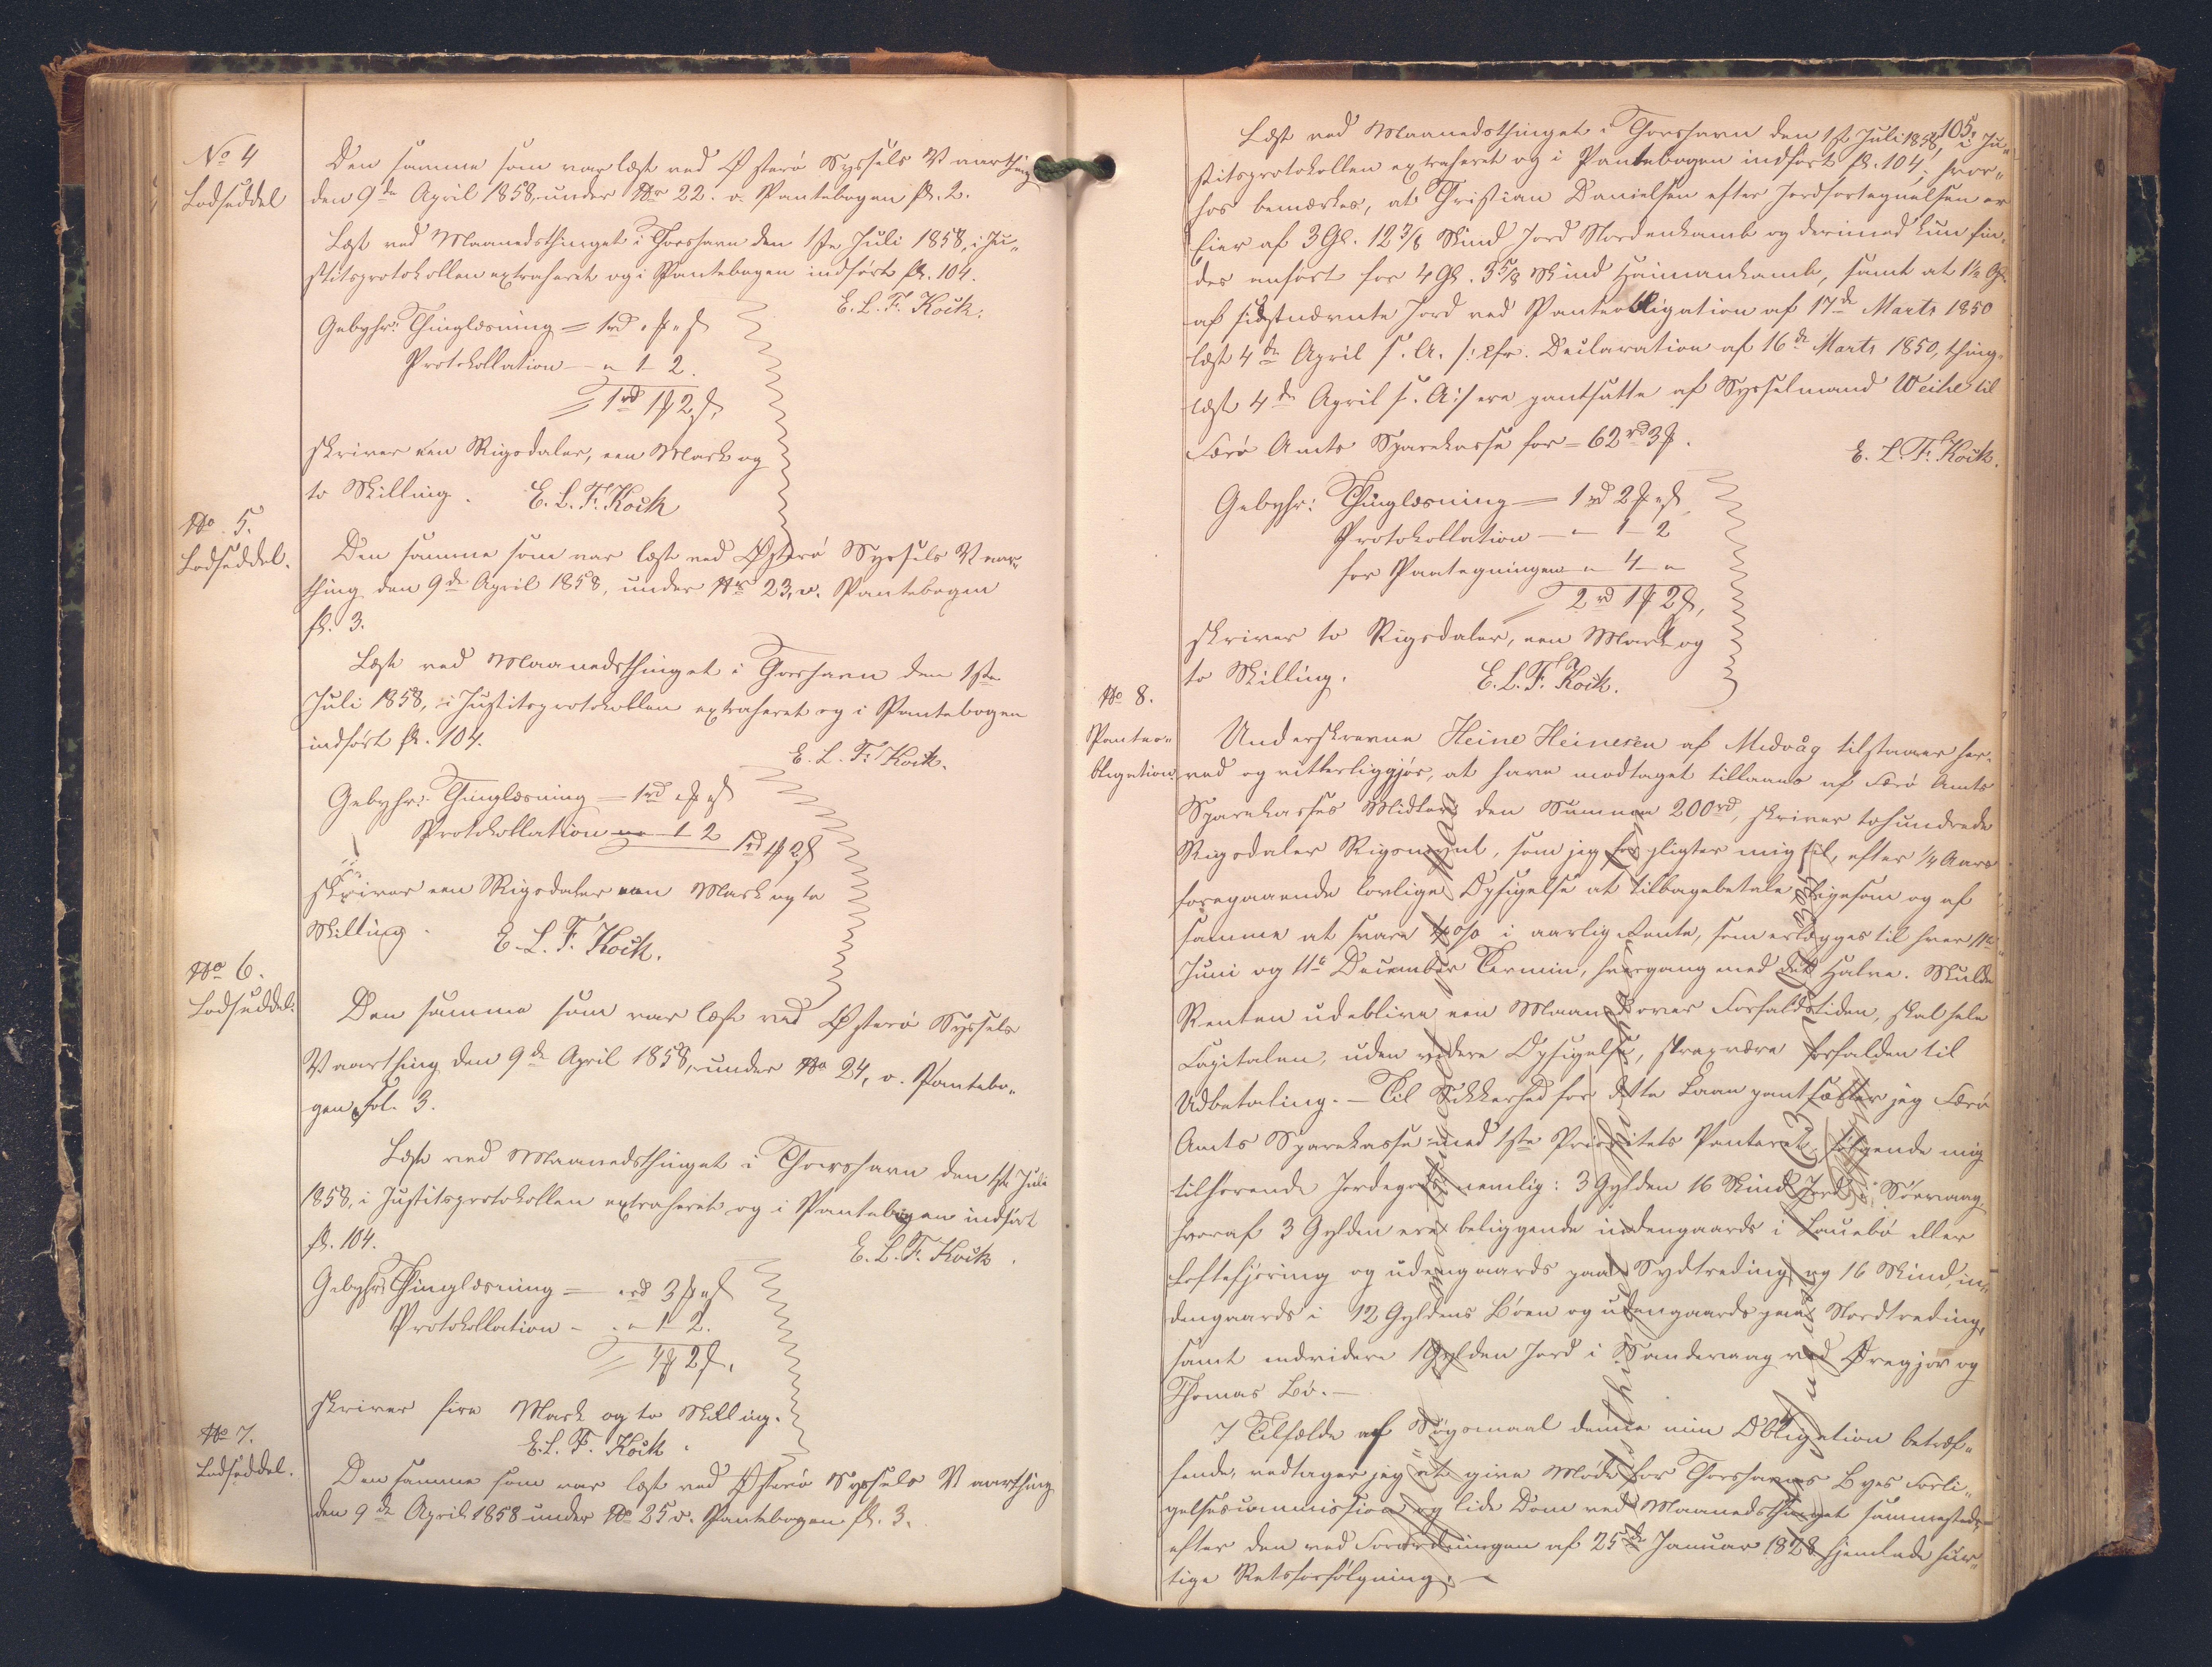 No 4
Lodseddel
Den samme som var læst ved Østerø Syssels Vaarthing
den 9de April 1858, under No 22. v. Pantebogen fl. 2.
Læst ved Maanedsthinget i Thorshavn den 1ste Juli 1858, i Ju-
stitsprotokollen extraheret og i Pantebogen indført fl. 104.
E. L. F. Koch.
Gebyhr: Thinglæsning = 1rd " ₰ " ß
Protokollation — " 1 2.
1rd 1 ₰ 2 ß.
skriver een Rigsdaler, een Mark og
to Skilling. E. L. F. Koch
No 5.
Lodseddel.
Den samme som var læst ved Østerø Syssels Vaar-
thing den 9de April 1858, under No 23, v. Pantebogen
fl. 3.
Læst ved Maanedsthinget i Thorshavn den 1ste
Juli 1858, i Justitsprotokollen extraheret og i Pantebogen
indført fl. 104.
E. L. F. Koch.
Gebyhr: Thinglæsning = 1rd " ₰ " ß
Protokollation — " 1 2 1rd 1 ₰ 2 ß
skriver een Rigsdaler een Mark og to
Skilling. E. L. F. Koch.
No 6.
Lodseddel.
Den samme som var læst ved Østerø Syssels
Vaarthing den 9de April 1858, under No 24, v. Pantebo-
gen fol. 3.
Læst ved Maanedsthinget i Thorshavn den 1ste Juli
1858, i Justitsprotokollen extraheret og i Pantebogen indført
fl. 104.
E. L. F. Koch.
Gebyhr: Thinglæsning = " rd 3 ₰ " ß
Protokollation - " " 1 2.
4 ₰ 2 ß.
skriver fire Mark og to Skilling.
E. L. F. Koch.
No 7.
Lodseddel.
Den samme som var læst ved Østerø Syssels Vaarthing
den 9de April 1858 under No 25 v. Pantebogen fl. 3.
105.
Læst ved Maanedsthinget i Thorshavn den 1ste Juli 1858, i Ju-
stitsprotokollen extraheret og i Pantebogen indført fl. 104; hvor-
hos bemærkes, at Christian Danielsen efter Jordfortegnelsen er
Eier af 3 Gl. 12 3/8 Skind Jord Nordenhamb og derimod kun fin-
des anført for 4 Gl. 3 5/8 Skind Haimanhamb, samt at 1½ Gl.
af sidstnævnte Jord ved Panteobligation af 17de Marts 1850
læst 4de April s. A. /: cfr. Declaration af 16de Marts 1850, thing-
læst 4de April s. A :/ ere pantsatte af Sysselmand Weihe til
Færø Amts Sparekasse for = 62rd 3 ₰.
E. L. F. Koch.
Gebyhr: Thinglæsning = 1rd 2 ₰ " ß
Protokollation — " 1 - 2
for Paategningen " 4 - "
2rd 1 ₰ 2 ß.
skriver to Rigsdaler, een Mark og
to Skilling. E. L. F. Koch.
No 8.
Panteo-
bligation
Underskrevne Heine Heinesen af Midvåg tilstaaer her-
ved og vitterliggjør, at have modtaget tillaans af Færø Amts
Sparekasses Midler den Summa 200rd, skriver tohundrede
Rigsdaler Rigsmynt, som jeg forpligter mig til, efter ¼ Aars
foregaaende lovlige Opsigelse at tilbagebetale, ligesom og af
samme at svare 4 o/o i aarlig Rente, som erlægges til hver 11te
Juni og 11te December Termin, hvergang med det Halve. Skulde
Renten udeblive een Maaned over Forfaldstiden, skal hele
Capitalen, uden videre Opsigelse, strax være forfalden til
Udbetaling. — Til Sikkerhed for dette Laan pantsætter jeg Færø
Amts Sparekasse med 1ste Prioritets Panteret følgende mig
tilhørende Jordegods nemlig: 3 Gylden 16 Skind Jord i Sørvaag
hvoraf 3 Gylden ere beliggende indengaards i Lauebø eller
Loftefjøring og udengaards paa Sydtreding og 16 Skind, in-
dengaards i 12 Gyldens Bøen og udengaards paa Nordtreding,
samt endvidere 1 Gylden Jord i Sandevaag ved Øregjov og
Thomas Bø. —
I Tilfælde af Søgsmaal denne min Obligation betræf-
fende, vedtager jeg at give Møde for Thorshavns Byes Forli-
gelsescommission og lide Dom ved Maanedsthinget sammesteds
efter den ved Forordningen af 25de Januar 1828 hjemlede hur-
tige Retsforfølgning. —